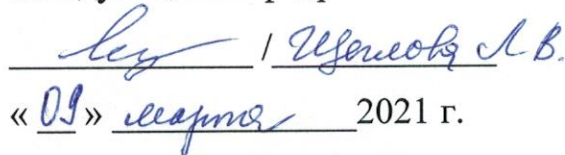 / Щеглова Л.В.
« 09 » марта 2021 г.